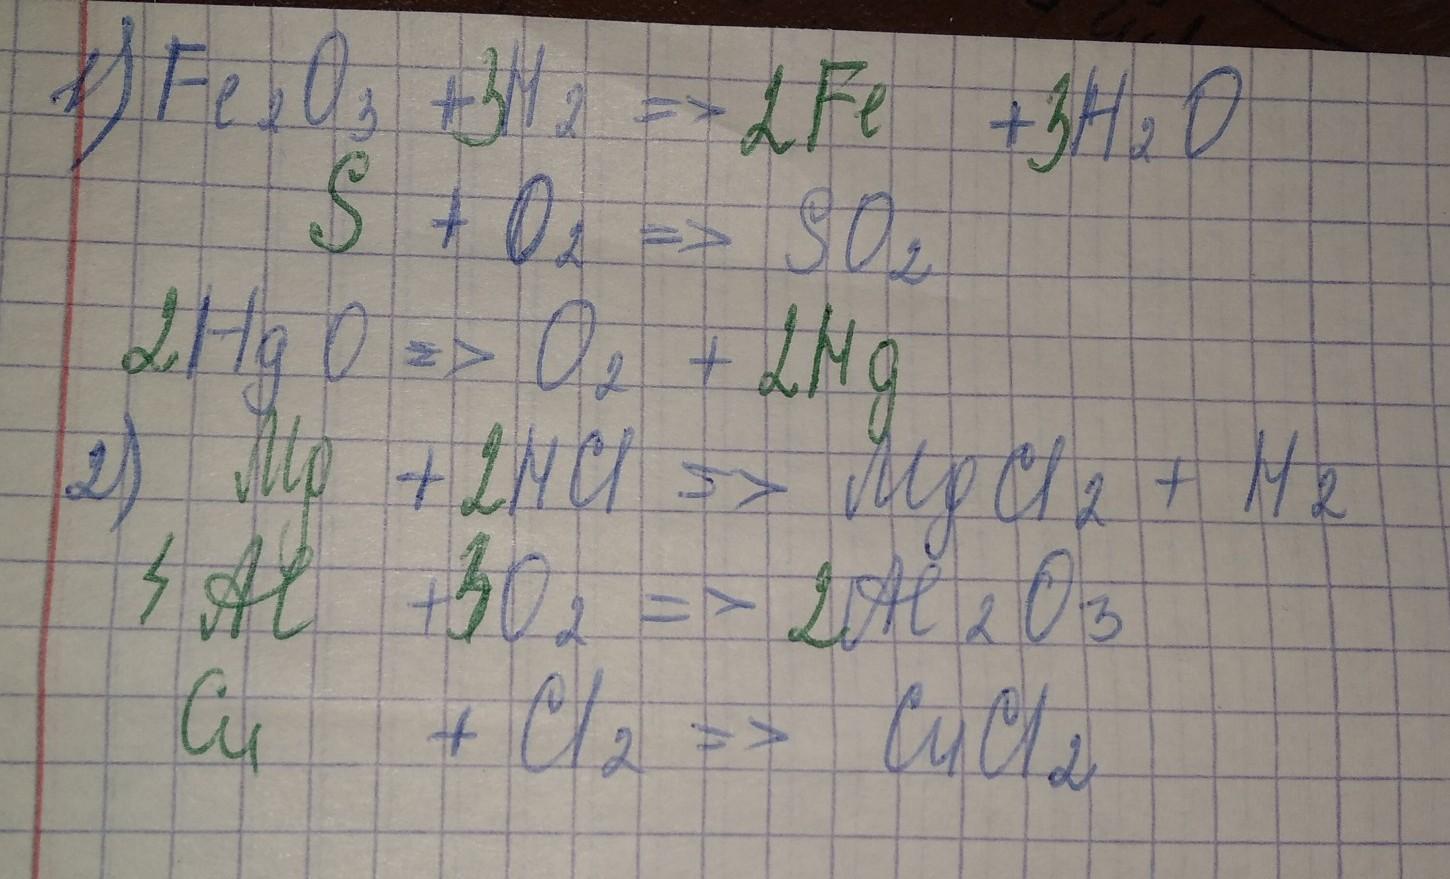 1) Fe2O3 +3H2 => 2Fe +3H2O
S + O2 => SO2
2HgO => O2 + 2Hg
2) Mg + 2HCl => MgCl2 + H2
4Al +3O2 => 2Al2O3
Cu + Cl2 => CuCl2